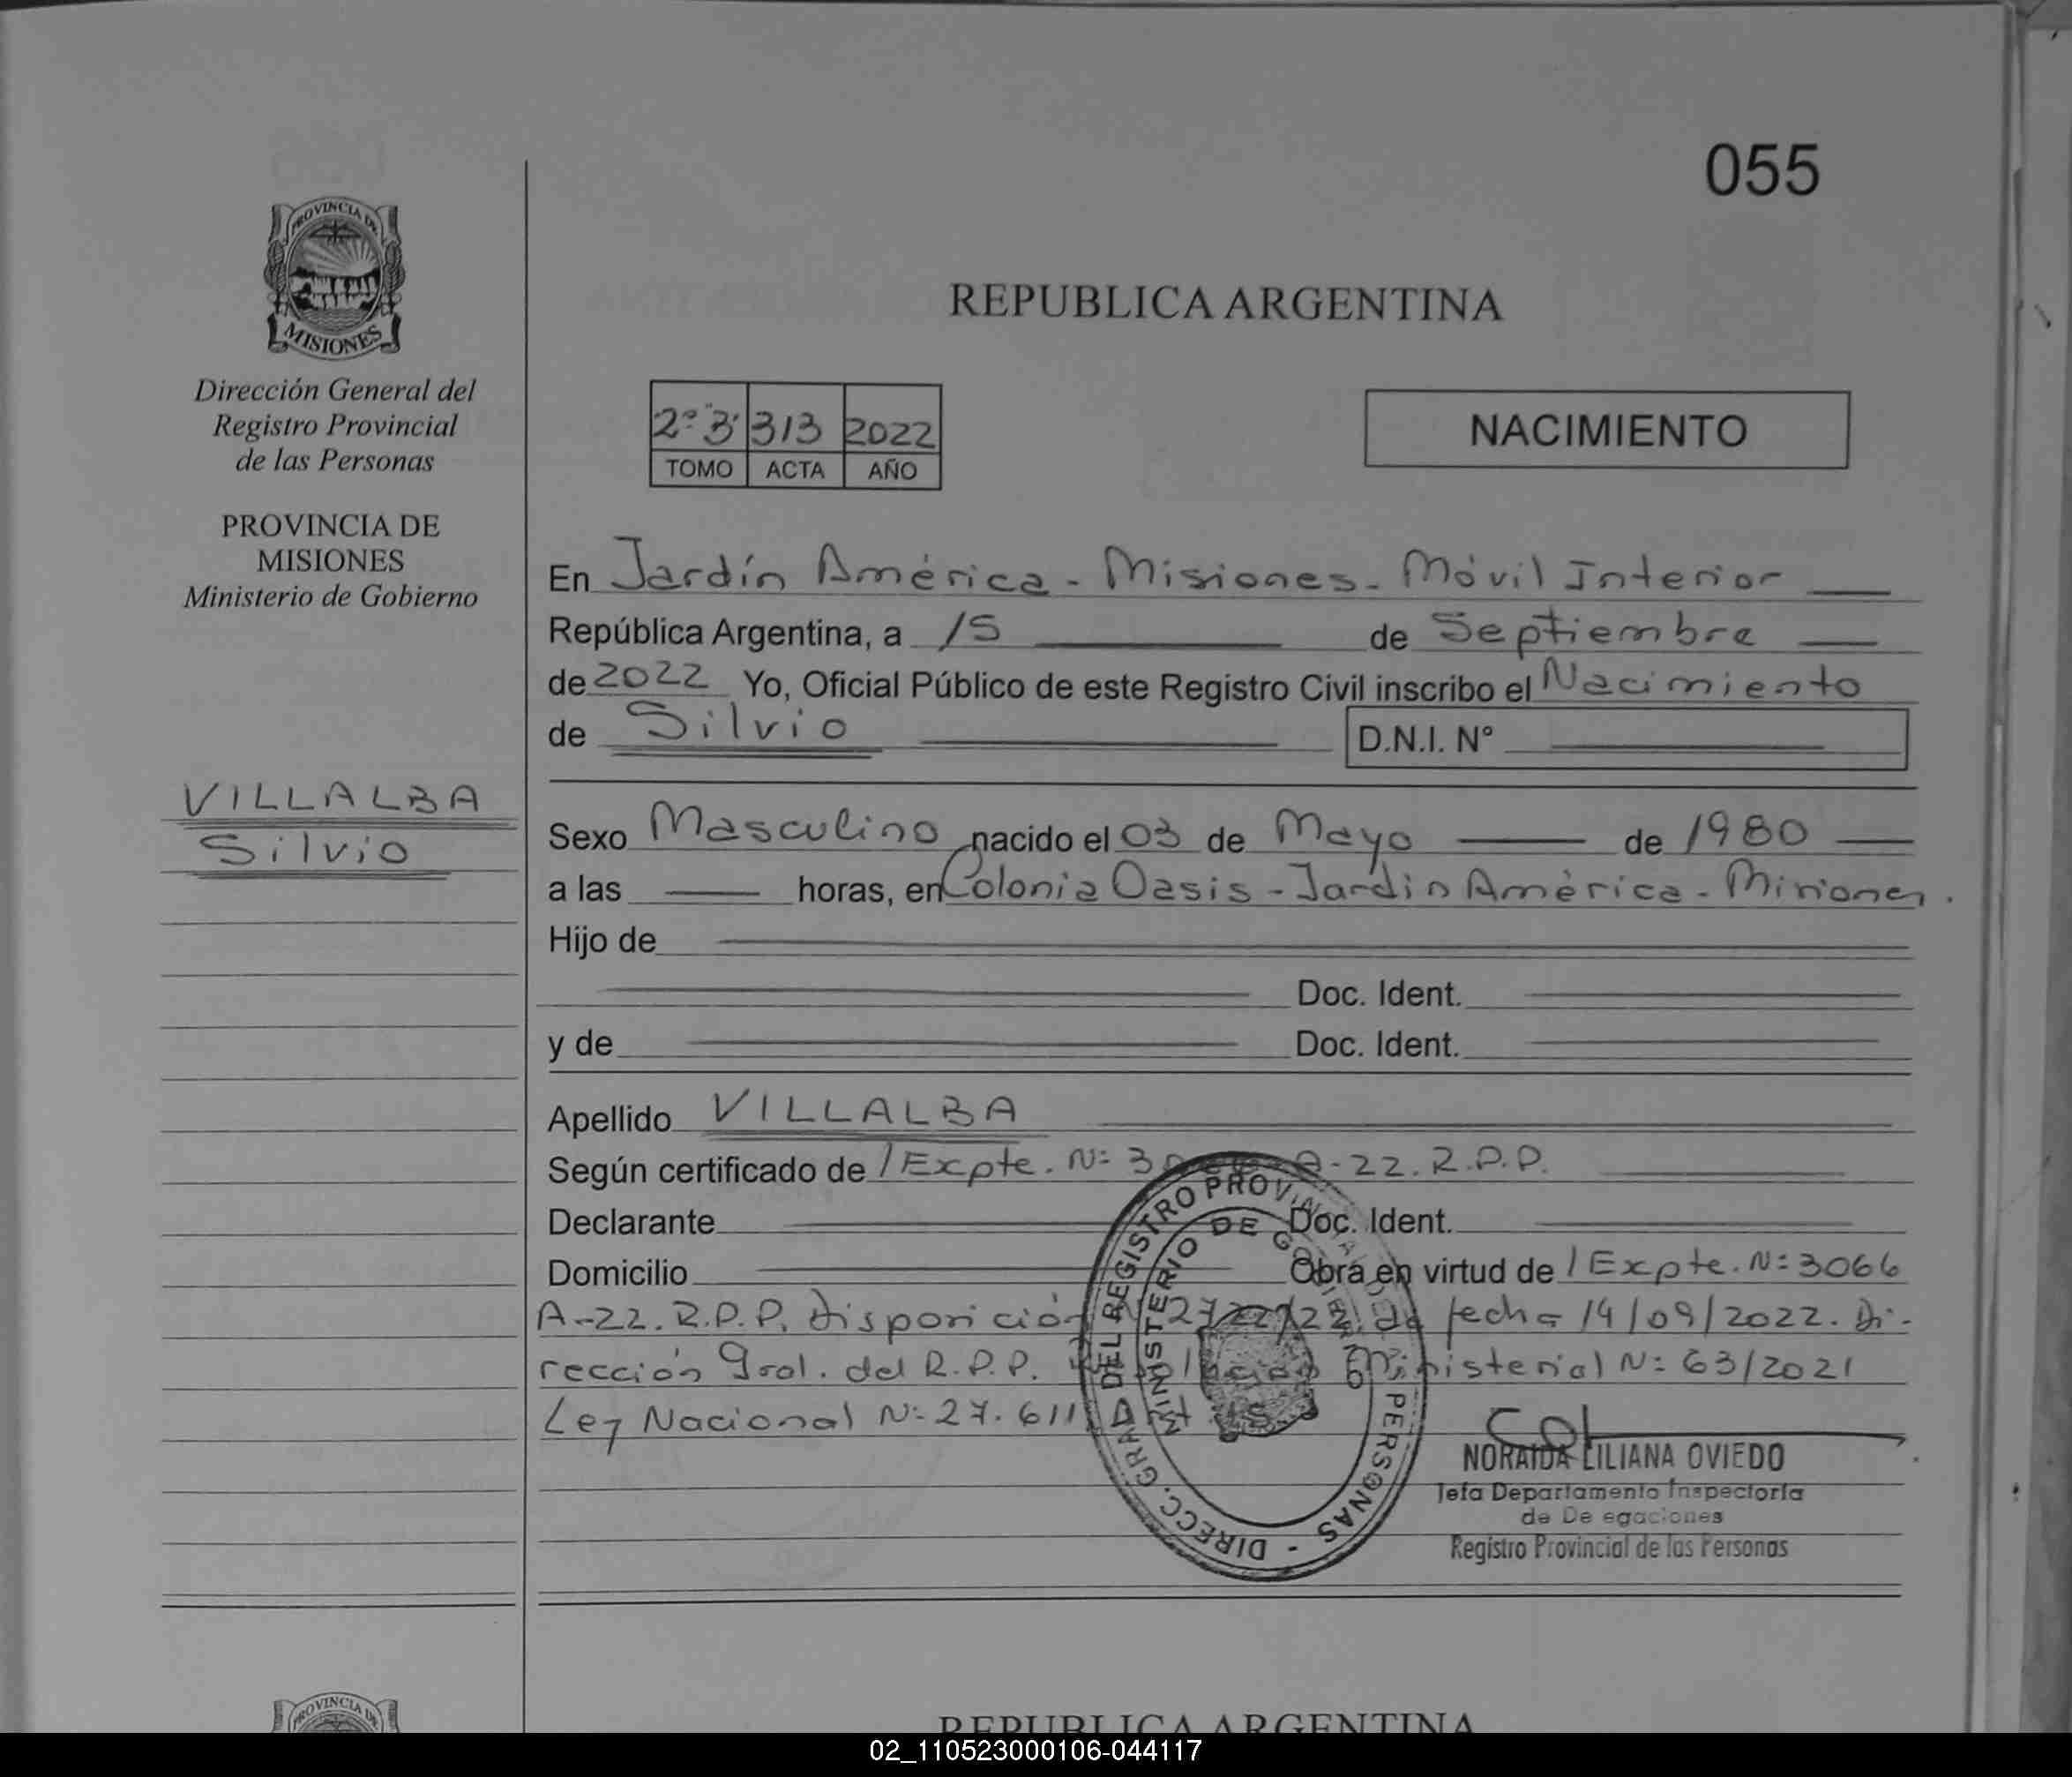 055
PROVINCIA DE
MISIONES
Dirección General del
Registro Provincial
de las Personas
PROVINCIA DE
MISIONES
Ministerio de Gobierno
VILLALBA
Silvio
REPUBLICA ARGENTINA
2º "3" 313 2022
TOMO ACTA AÑO
NACIMIENTO
En Jardín América - Misiones - Móvil Interior
República Argentina, a 15 de Septiembre
de 2022 Yo, Oficial Público de este Registro Civil inscribo el Nacimiento
de Silvio D.N.I. N°
Sexo Masculino nacido el 03 de Mayo de 1980
a las horas, en Colonia Oasis - Jardín América - Misiones.
Hijo de
Doc. Ident.
y de Doc. Ident.
Apellido VILLALBA
Según certificado de / Expte. Nº 3066-A-22. R.P.P.
Declarante Doc. Ident.
Domicilio Obra en virtud de / Expte. Nº 3066
A-22. R.P.P. Disposición de fecha 14/09/2022. Di-
rección Gral. del R.P.P. Ministerial Nº 63/2021
Ley Nacional Nº 27.611 Art
DIRECC. GRAL DEL REGISTRO PROVINCIAL DE LAS PERSONAS -
MINISTERIO DE GOBIERNO
NORAIDA LILIANA OVIEDO
Jefa Departamento Inspectoría
de De egaciones
Registro Provincial de las Personas
PROVINCIA DE
REPUBLICA ARGENTINA
02_110523000106-044117